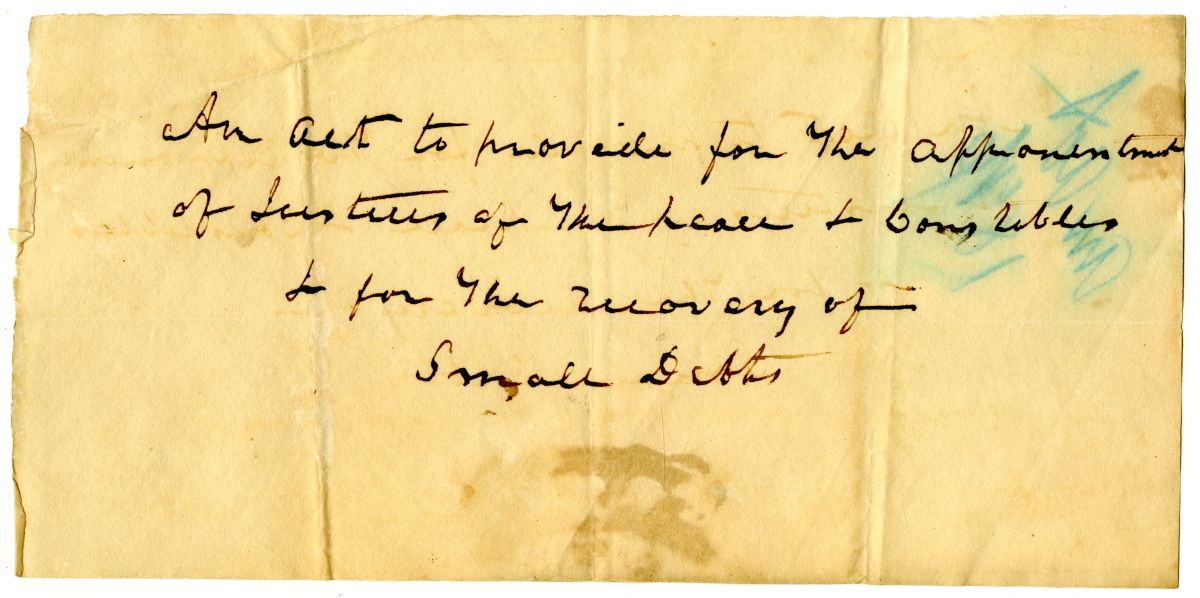 An Act to provide for the appointment
of Justices of the peace & Constables
& for the recovery of
Small Debts